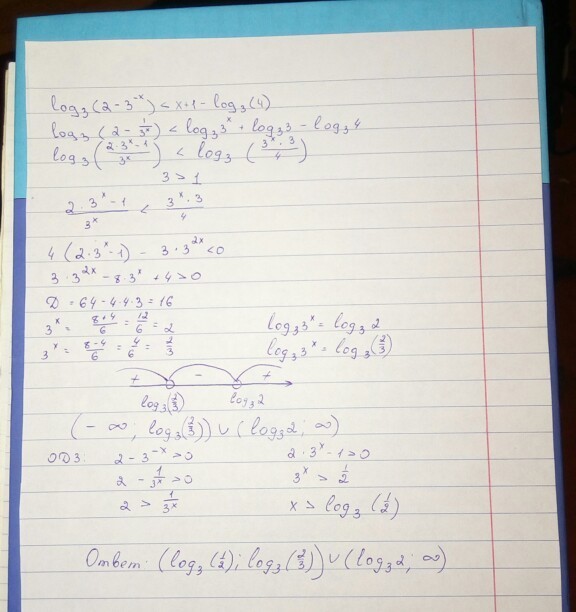 log₃(2-3⁻ˣ) < x+1 - log₃(4)
log₃(2 - 1/3ˣ) < log₃3ˣ + log₃3 - log₃4
log₃((2·3ˣ-1)/3ˣ) < log₃((3ˣ·3)/4)
3 > 1
(2·3ˣ-1)/3ˣ < (3ˣ·3)/4
4(2·3ˣ-1) - 3·3²ˣ<0
3·3²ˣ - 8·3ˣ + 4>0
D = 64-4·4·3 = 16
3ˣ = (8+4)/6 = 12/6 = 2 log₃3ˣ = log₃2
3ˣ = (8-4)/6 = 4/6 = 2/3 log₃3ˣ = log₃(2/3)
+ - +
log₃(2/3) log₃2
(-∞; log₃(2/3)) ∪ (log₃2; ∞)
ОДЗ: 2-3⁻ˣ>0 2·3ˣ-1>0
2 - 1/3ˣ >0 3ˣ > 1/2
2 > 1/3ˣ x > log₃(1/2)
Ответ: (log₃(1/2); log₃(2/3)) ∪ (log₃2; ∞)